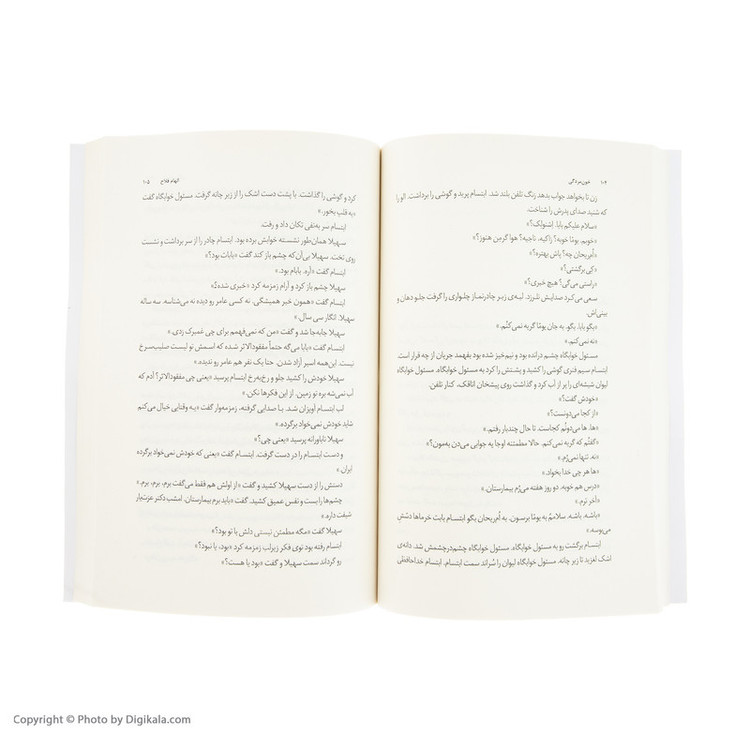 ۱۰۴ خون‌مردگی
زن تا بخواهد جواب بدهد زنگ تلفن بلند شد. ابتسام پرید و گوشی را برداشت. الو را
که شنید صدای پدرش را شناخت.
«سلام علیکم بابا. اشولک؟»
«خوبم. یومّا خوبه؟ زاکیه، ناجیه؟ هوا گرمن هنوز؟»
«اُم‌ریحان چه؟ پاش بهتره؟»
«کِی برگشتی؟»
«راستی می‌گی؟ هیچ خبری؟»
سعی می‌کرد صدایش نلرزد. لبه‌ی زیر چادرنماز چلواری را گرفت جلو دهان و
بینی‌اش.
«بگو بابا. بگو. به جان یومّا گریه نمی‌کُنم.»
«نه نمی‌کنم.»
مسئول خوابگاه چشم درانده بود و نیم‌خیز شده بود بفهمد جریان از چه قرار است.
ابتسام سیم فنری گوشی را کشید و پشتش را کرد به مسئول خوابگاه. مسئول خوابگاه
لیوان شیشه‌ای را پر از آب کرد و گذاشت روی پیشخان اتاقک، کنار تلفن.
«خودش گفت؟»
«از کجا می‌دونست؟»
«ها، ها می‌دونُم کجاست. تا حال چندبار رفتم.»
«گفتُم که گریه نمی‌کنم. حالا مطمئنه اوجا یه جوابی می‌دن به‌مون؟»
«نه. تنها نمی‌رُم.»
«ها هر چی خدا بخواد.»
«درس هم خوبه. دو روز هفته می‌رُم بیمارستان.»
«آخر ترم.»
«باشه. باشه. سلاممُ به یومّا برسون. به اُم‌ریحان بگو ابتسام بابت خرماها دستش
می‌بوسه.»
ابتسام برگشت رو به مسئول خوابگاه. مسئول خوابگاه چشم‌درچشمش شد. دانه‌ی
اشک لغزید تا زیر چانه. مسئول خوابگاه لیوان را سُراند سمت ابتسام. ابتسام خداحافظی
الهام فلاح ۱۰۵
کرد و گوشی را گذاشت. با پشت دست اشک را از زیر چانه گرفت. مسئول خوابگاه گفت
«یه قلپ بخور.»
ابتسام سر به‌نفی تکان داد و رفت.
سهیلا همان‌طور نشسته خوابش برده بود. ابتسام چادر را از سر برداشت و نشست
روی تخت. سهیلا بی‌آن‌که چشم باز کند گفت «بابات بود؟»
ابتسام گفت «آره. بابام بود.»
سهیلا چشم باز کرد و آرام زمزمه کرد «خبری شده؟»
ابتسام گفت «همون خبر همیشگی. نه کسی عامر رو دیده نه می‌شناسه. سه ساله
سهیلا. انگار سی سال.»
سهیلا جابه‌جا شد و گفت «من که نمی‌فهمم برای چی غمبرک زدی.»
ابتسام گفت «بابا می‌گه حتماً مفقودالاثر شده که اسمش تو لیست صلیب‌سرخ
نیست. این‌همه اسیر آزاد شدن. حتا یک نفر هم عامر رو ندیده.»
سهیلا خودش را کشید جلو و رخ‌به‌رخ ابتسام پرسید «یعنی چی مفقودالاثر؟ آدم که
آب نمی‌شه بره تو زمین. از این فکرها نکن.»
لب ابتسام آویزان شد. با صدایی گرفته، زمزمه‌وار گفت «یه وقتایی خیال می‌کنم
شاید خودش نمی‌خواد برگرده.»
سهیلا ناباورانه پرسید «یعنی چی؟»
و دست ابتسام را در دست گرفت. ابتسام گفت «یعنی که خودش نمی‌خواد برگرده
ایران.»
دستش را از دست سهیلا کشید و گفت «از اولش هم فقط می‌گفت برم، برم، برم.»
چشم‌ها را بست و نفس عمیق کشید. گفت «باید برم بیمارستان. امشب دکتر عزت‌یار
شیفت داره.»
سهیلا گفت «مگه مطمئن نیستی دلش با تو بود؟»
ابتسام رفته بود توی فکر زیرلب زمزمه کرد «بود، یا نبود؟»
رو گرداند سمت سهیلا و گفت «بود یا هست؟»
Copyright © Photo by Digikala.com